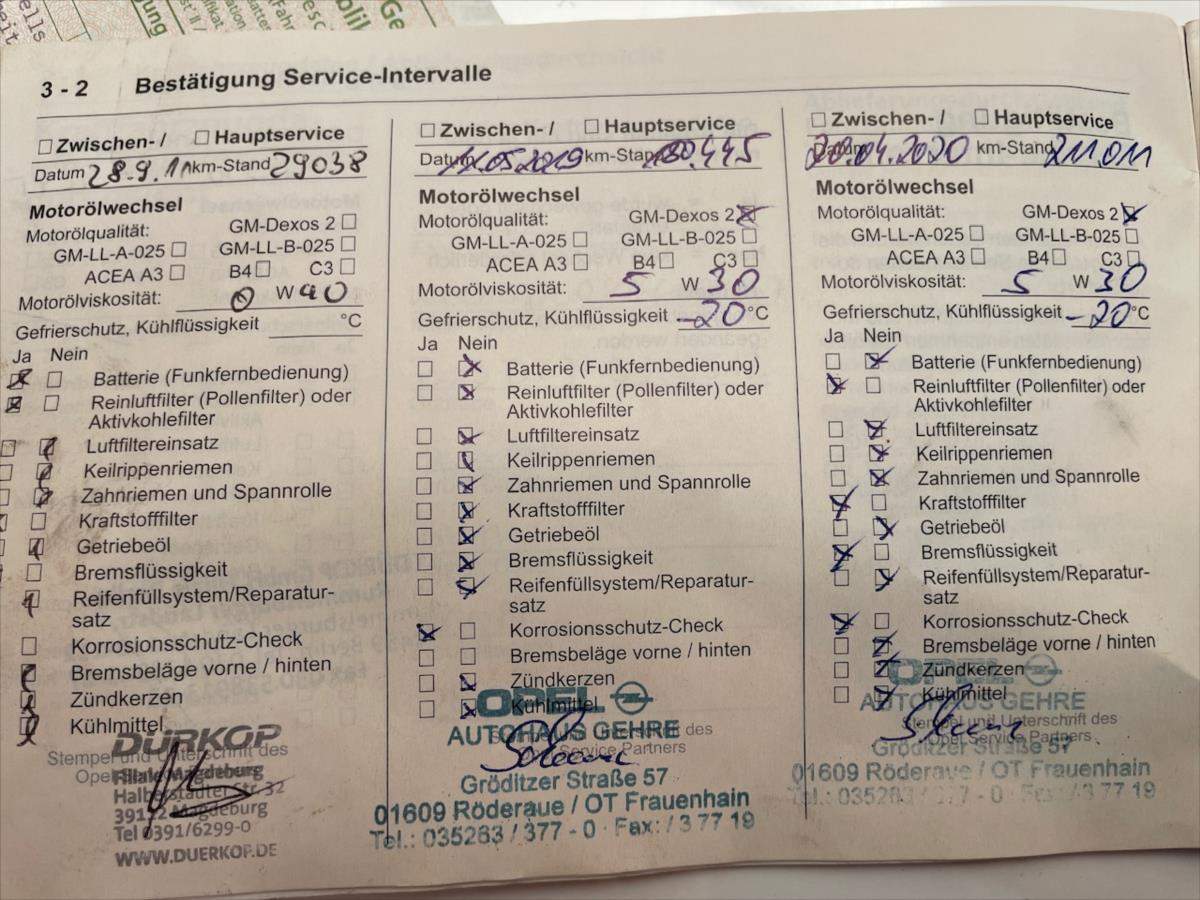 3 - 2 Bestätigung Service-Intervalle
☐ Zwischen- / ☐ Hauptservice
Datum 28.9.11 km-Stand 29038
Motorölwechsel
Motorölqualität: GM-Dexos 2 ☐
GM-LL-A-025 ☐ GM-LL-B-025 ☐
ACEA A3 ☐ B4 ☐ C3 ☐
Motorölviskosität: 0 W 40
Gefrierschutz, Kühlflüssigkeit °C
Ja Nein
Batterie (Funkfernbedienung)
Reinluftfilter (Pollenfilter) oder
Aktivkohlefilter
Luftfiltereinsatz
Keilrippenriemen
Zahnriemen und Spannrolle
Kraftstofffilter
Getriebeöl
Bremsflüssigkeit
Reifenfüllsystem/Reparatur-
satz
Korrosionsschutz-Check
Bremsbeläge vorne / hinten
Zündkerzen
Kühlmittel
Stempel und Unterschrift des
DÜRKOP
Filiale Magdeburg
Halberstädter Str. 32
39112 Magdeburg
Tel 0391/6299-0
WWW.DUERKOP.DE
☐ Zwischen- / ☐ Hauptservice
Datum 11.05.2019 km-Stand 180.445
Motorölwechsel
Motorölqualität: GM-Dexos 2 ☒
GM-LL-A-025 ☐ GM-LL-B-025 ☐
ACEA A3 ☐ B4 ☐ C3 ☐
Motorölviskosität: 5 W 30
Gefrierschutz, Kühlflüssigkeit -20 °C
Ja Nein
Batterie (Funkfernbedienung)
Reinluftfilter (Pollenfilter) oder
Aktivkohlefilter
Luftfiltereinsatz
Keilrippenriemen
Zahnriemen und Spannrolle
Kraftstofffilter
Getriebeöl
Bremsflüssigkeit
Reifenfüllsystem/Reparatur-
satz
Korrosionsschutz-Check
Bremsbeläge vorne / hinten
Zündkerzen
Kühlmittel
OPEL
AUTOHAUS GEHRE
Service Partners
Gröditzer Straße 57
01609 Röderaue / OT Frauenhain
Tel.: 035263 / 377 - 0 · Fax: / 3 77 19
☐ Zwischen- / ☐ Hauptservice
Datum 20.04.2020 km-Stand 211.011
Motorölwechsel
Motorölqualität: GM-Dexos 2 ☒
GM-LL-A-025 ☐ GM-LL-B-025 ☐
ACEA A3 ☐ B4 ☐ C3 ☐
Motorölviskosität: 5 W 30
Gefrierschutz, Kühlflüssigkeit -20 °C
Ja Nein
Batterie (Funkfernbedienung)
Reinluftfilter (Pollenfilter) oder
Aktivkohlefilter
Luftfiltereinsatz
Keilrippenriemen
Zahnriemen und Spannrolle
Kraftstofffilter
Getriebeöl
Bremsflüssigkeit
Reifenfüllsystem/Reparatur-
satz
Korrosionsschutz-Check
Bremsbeläge vorne / hinten
Zündkerzen
Kühlmittel
OPEL
AUTOHAUS GEHRE
Stempel und Unterschrift des
Opel Service Partners
Gröditzer Straße 57
01609 Röderaue / OT Frauenhain
Tel.: 035263 / 377 - 0 · Fax: / 3 77 19